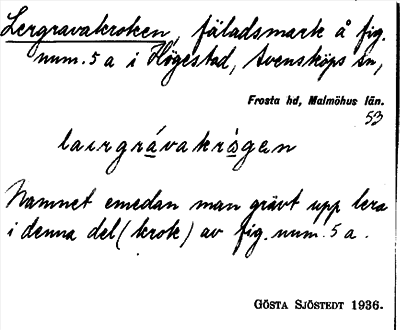 Lergravakroken, fäladsmark å fig.
num. 5 a i Högestad, Svensköps sn,
Frosta hd, Malmöhus län.
53
laırgrávakrógen
Namnet emedan man grävt upp lera
i denna del (krok) av fig. num. 5 a.
GÖSTA SJÖSTEDT 1936.